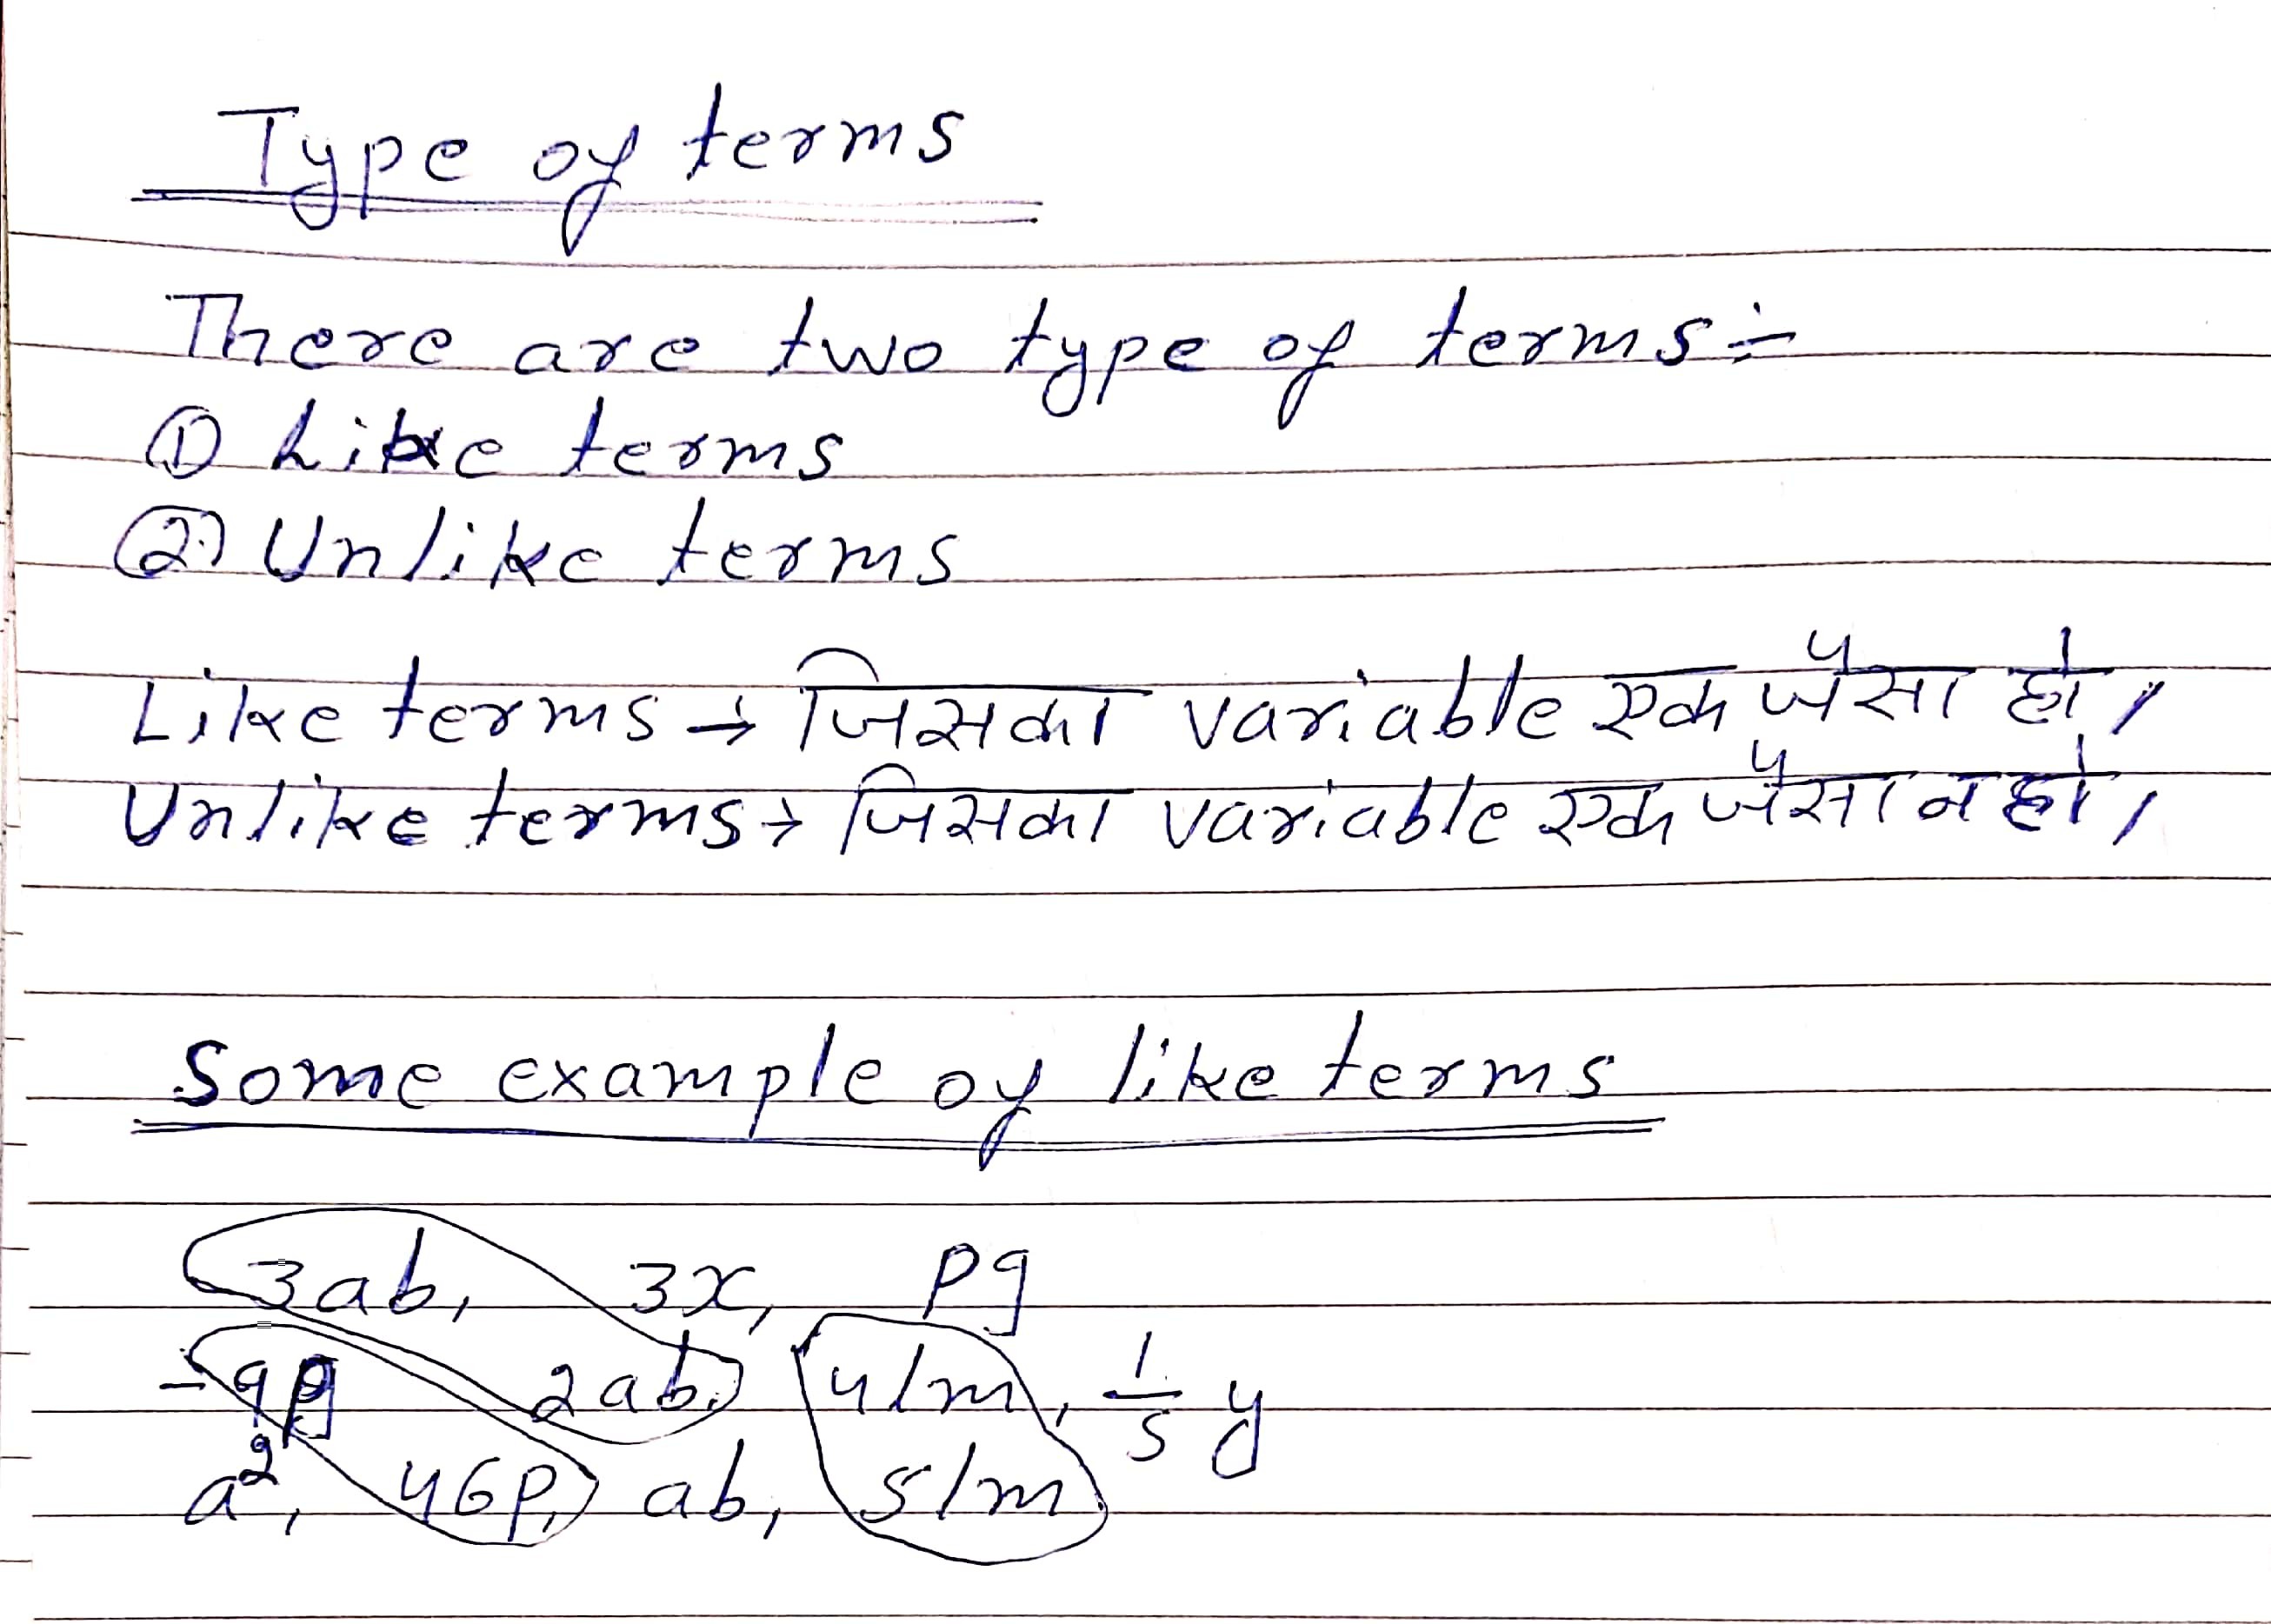 Type of terms
There are two type of terms :-
① Like terms
② Unlike terms
Like terms → जिसका variable एक जैसा हो।
Unlike terms → जिसका variable एक जैसा न हो।
Some example of like terms
3ab, 3x, pq
2ab, 4lm, 1/5 y
a², 46p, ab, 5lm